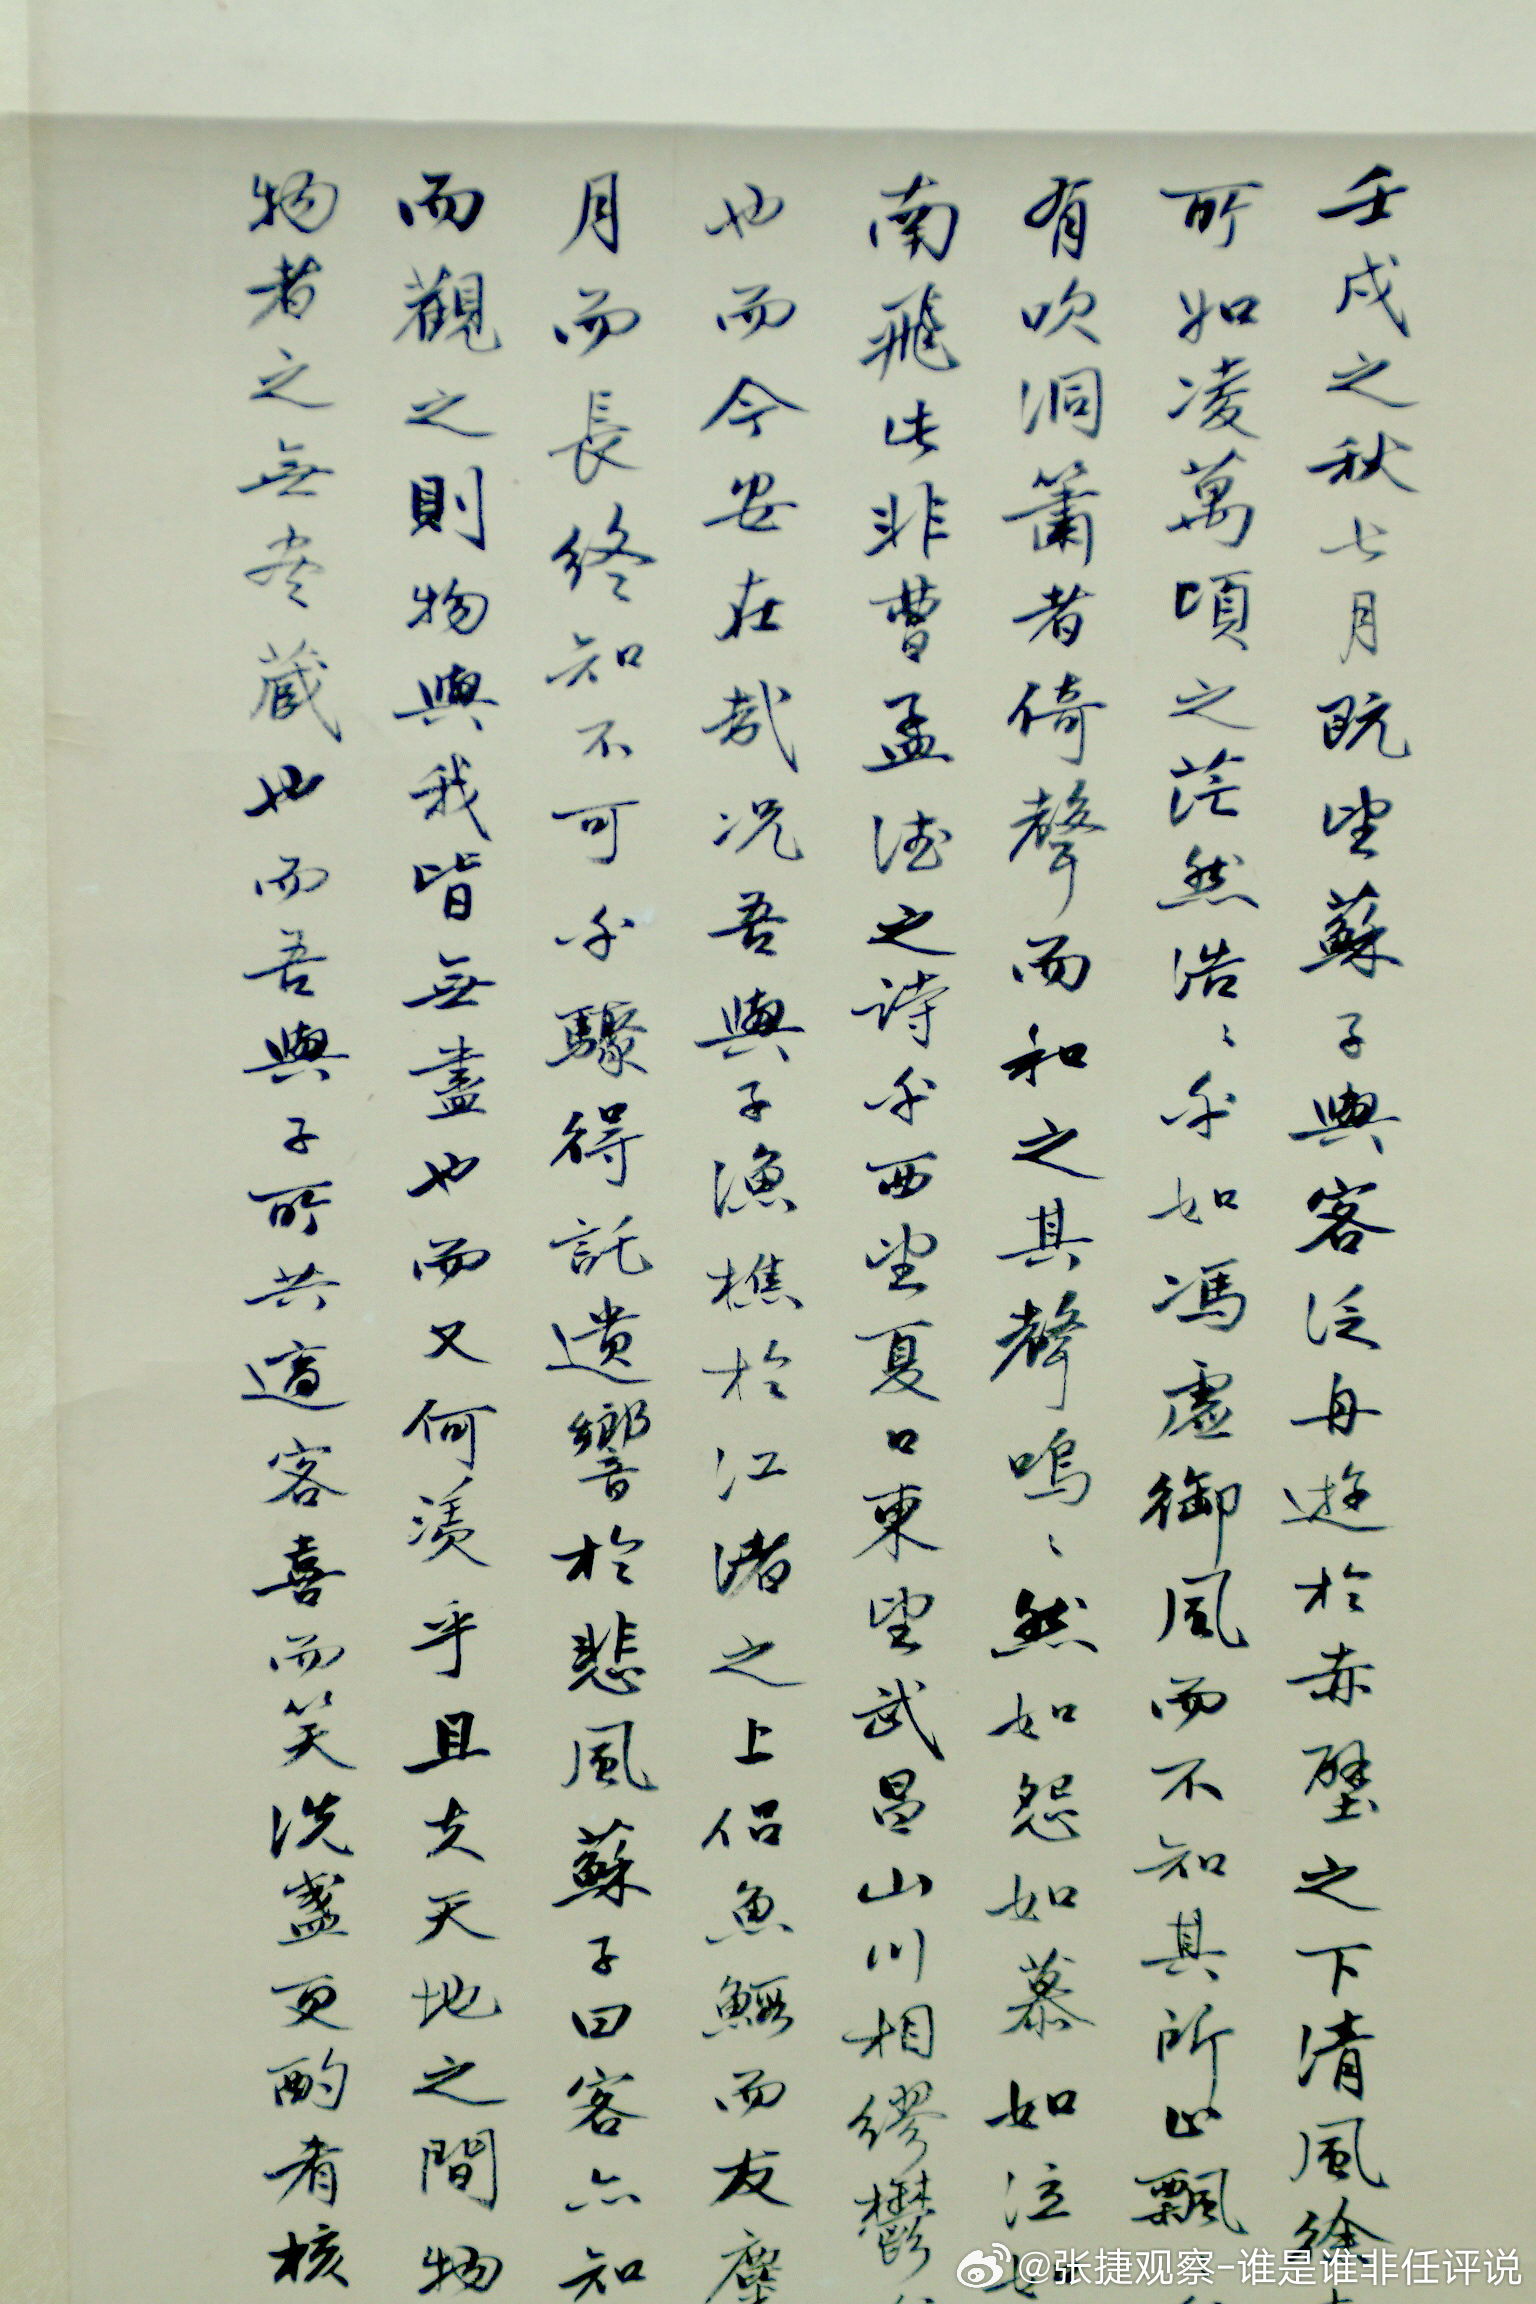 壬戌之秋七月既望蘇子與客泛舟遊於赤壁之下清風徐
所如凌萬頃之茫然浩〻乎如馮虛御風而不知其所止飄
有吹洞簫者倚聲而和之其聲嗚〻然如怨如慕如泣如
南飛此非曹孟德之詩乎西望夏口東望武昌山川相繆鬱
也而今安在哉況吾與子漁樵於江渚之上侶魚鰕而友麋
月而長終知不可乎驟得託遺響於悲風蘇子曰客亦知
而觀之則物與我皆無盡也而又何羨乎且夫天地之間物
物者之無盡藏也而吾與子所共適客喜而笑洗盞更酌肴核
@张捷观察-谁是谁非任评说